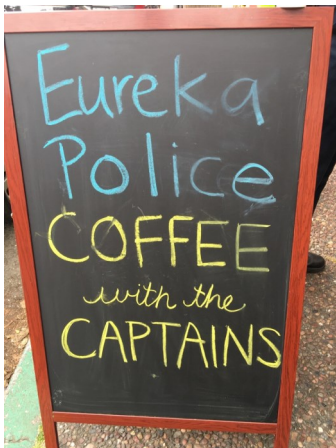 Eureka
Police
COFFEE
with the
CAPTAINS